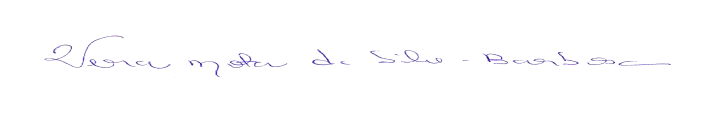 Vera mota da Silva - Barbosa